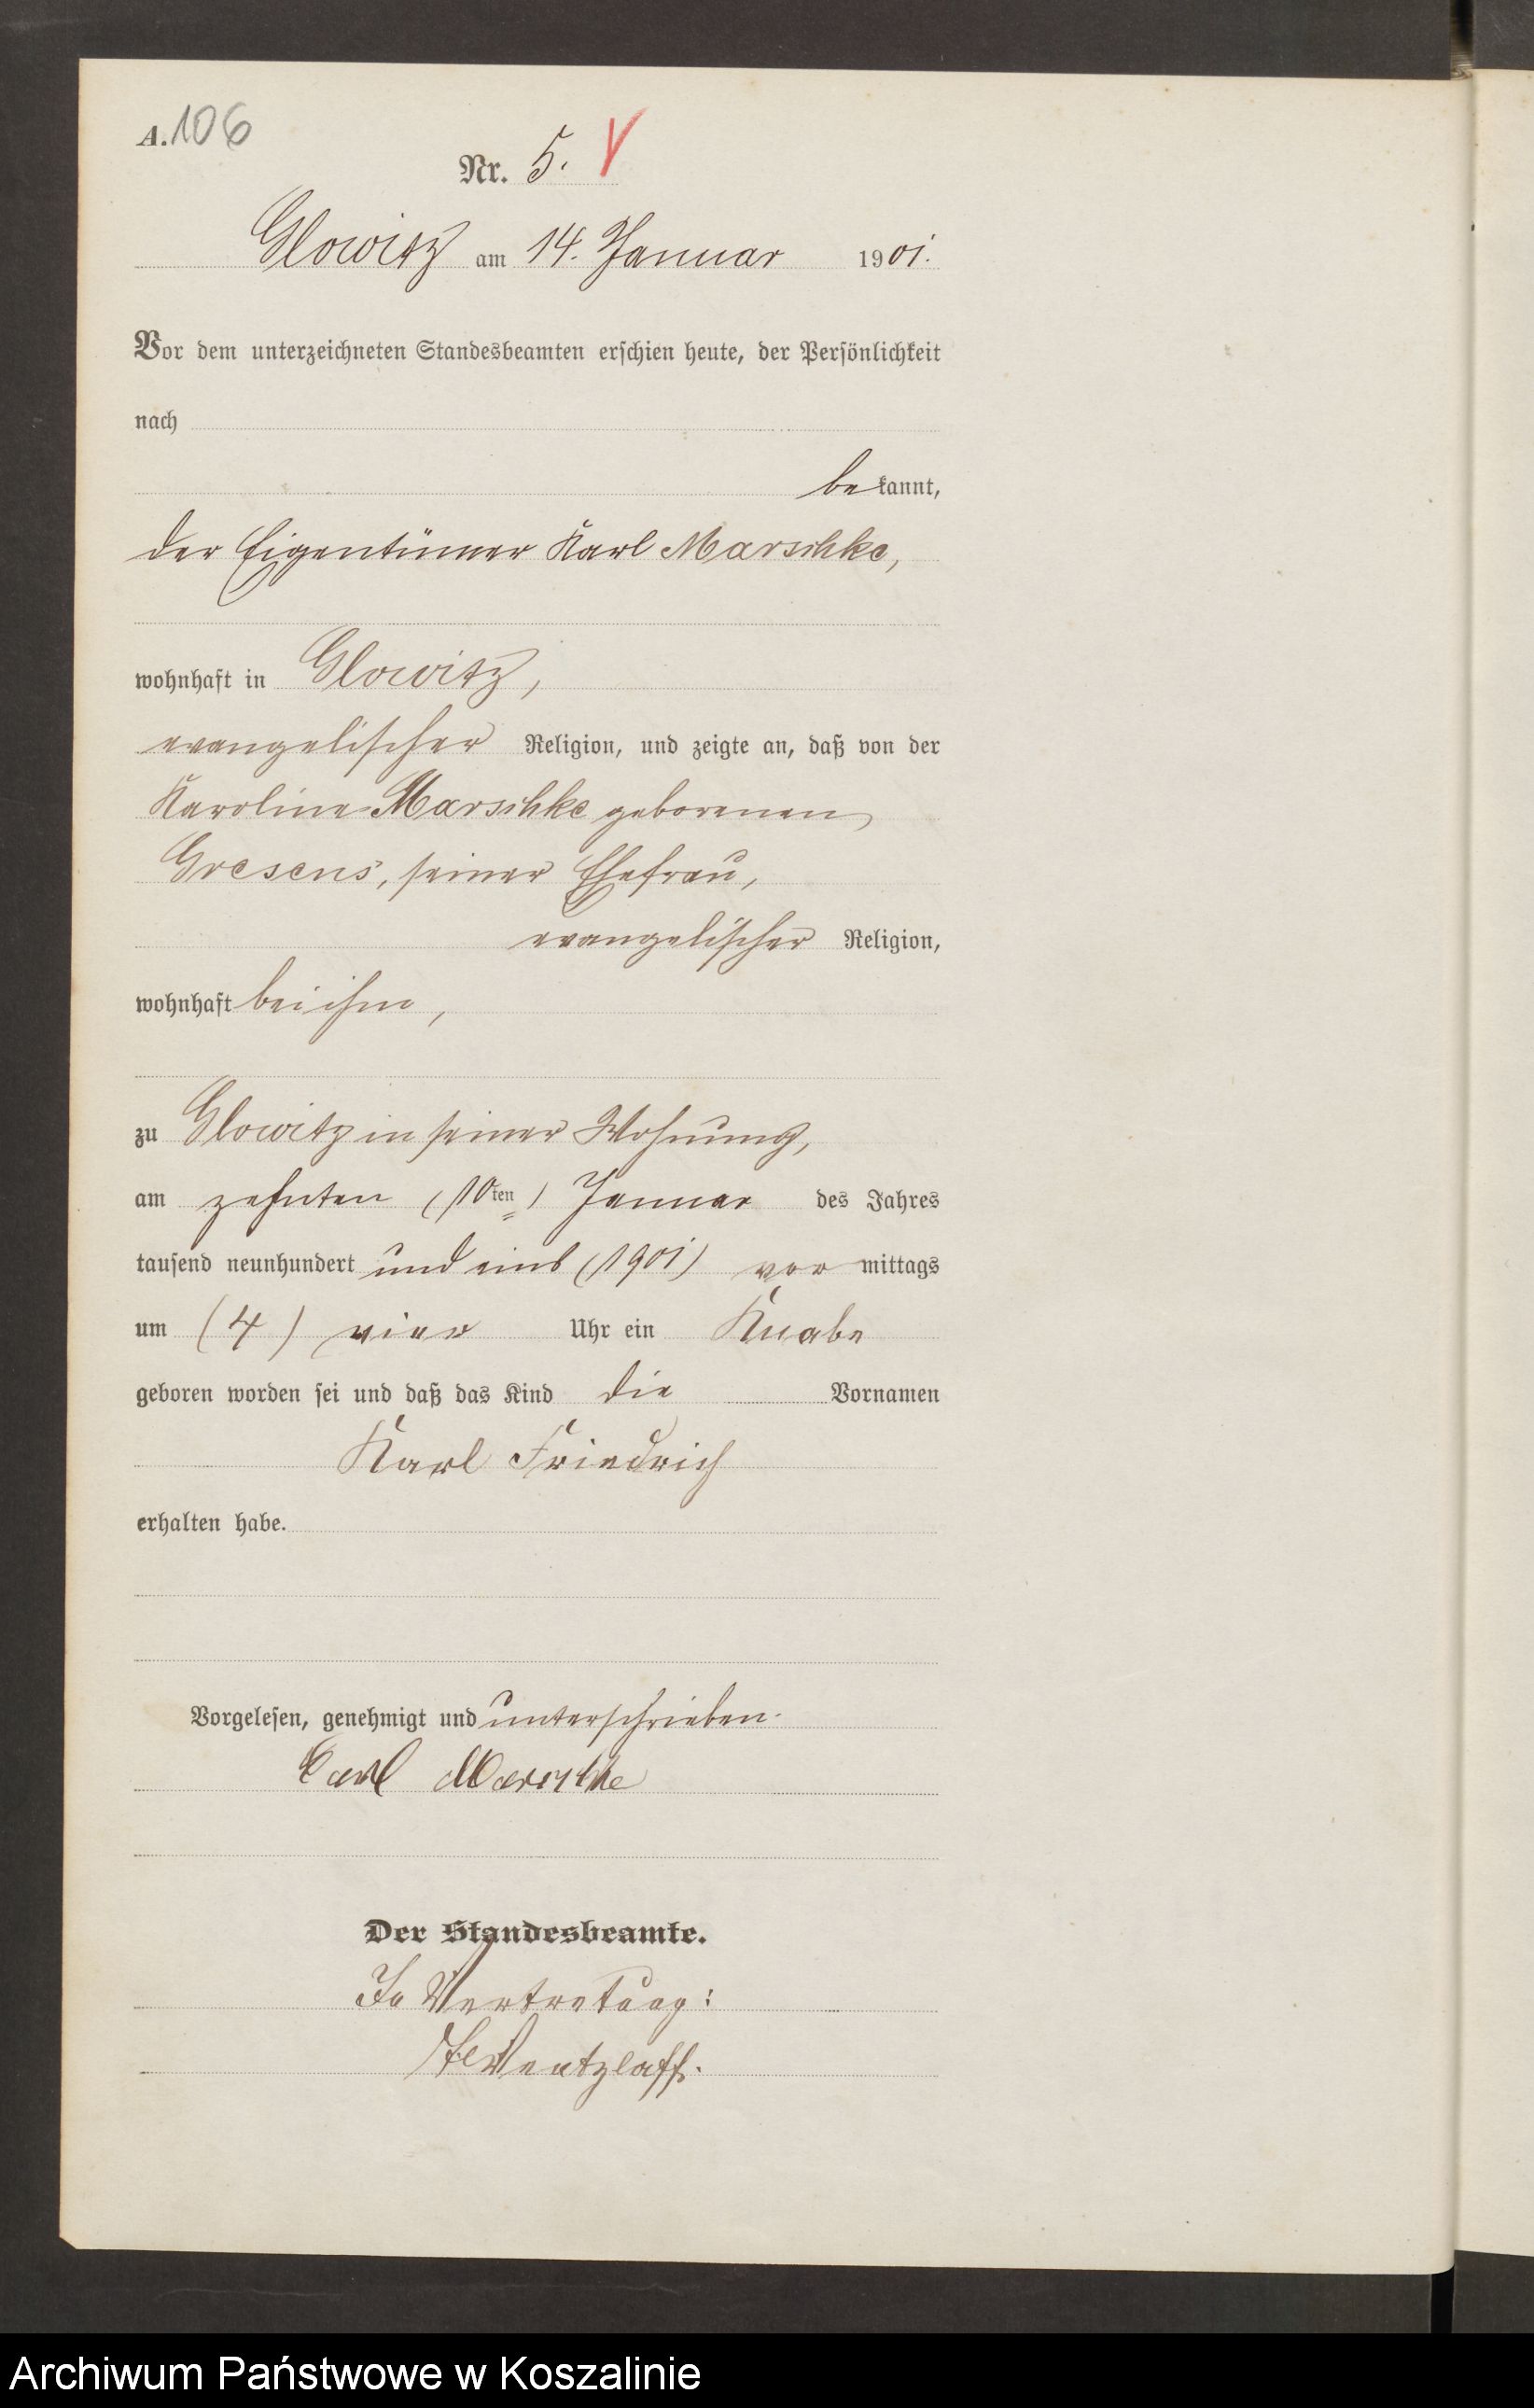 A. 106
Nr. 5.
Glowitz am 14. Januar 1901.
Vor dem unterzeichneten Standesbeamten erschien heute, der Persönlichkeit
nach
bekannt,
der Eigentümer Karl Marschke,
wohnhaft in Glowitz,
evangelischer Religion, und zeigte an, daß von der
Karoline Marschke geborenen
Gresens, seiner Ehefrau,
evangelischer Religion,
wohnhaft bei ihm,
zu Glowitz in seiner Wohnung,
am zehnten (10ten) Januar des Jahres
tausend neunhundert und eins (1901) vor mittags
um (4) vier Uhr ein Knabe
geboren worden sei und daß das Kind die Vornamen
Karl Friedrich
erhalten habe.
Vorgelesen, genehmigt und unterschrieben.
Carl Marschke
Der Standesbeamte.
In Vertretung:
Wentzlaff.
Archiwum Państwowe w Koszalinie